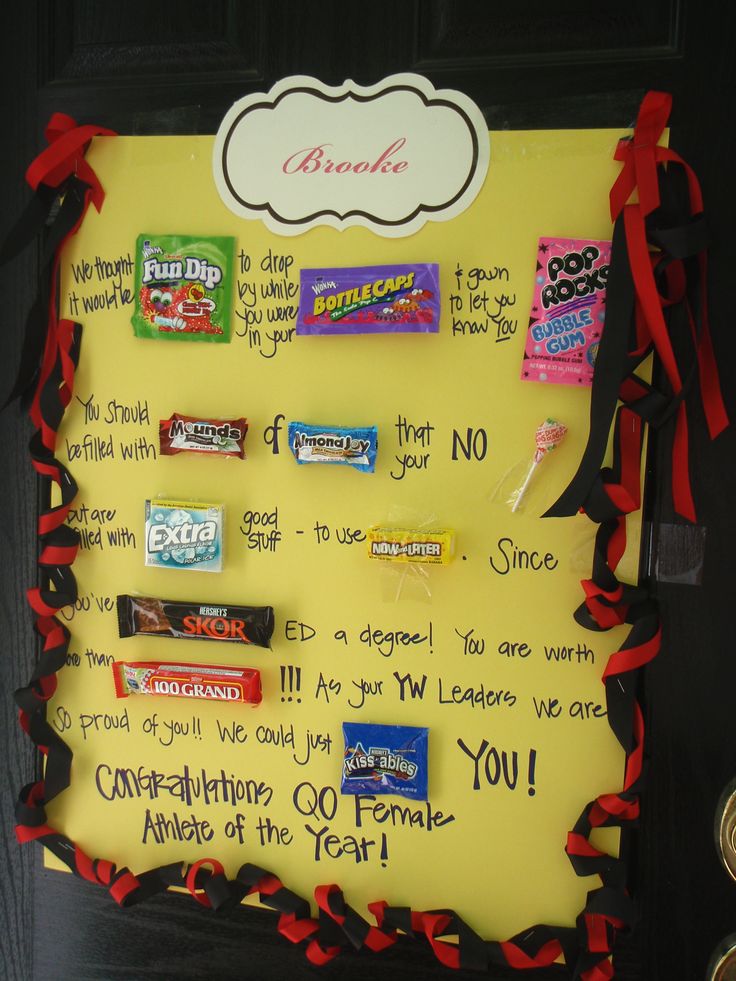 Brooke
We thought it would be WONKA Fun Dip to drop by while you were in your WONKA BOTTLE CAPS & gown to let you know YOU POP ROCKS BUBBLE GUM POPPING BUBBLE GUM NET WT. 0.32 oz. (10.0g)
You should be filled with MOUNDS of Almond Joy that your NO DUM DUM
but are filled with Extra POLAR ICE good stuff - to use NOW and LATER . Since
you've HERSHEY'S SKOR ED a degree! You are worth
more than 100 GRAND !!! As your YW Leaders we are
So proud of you!! We could just HERSHEY'S Kissables YOU!
Congratulations QO Female
Athlete of the Year!